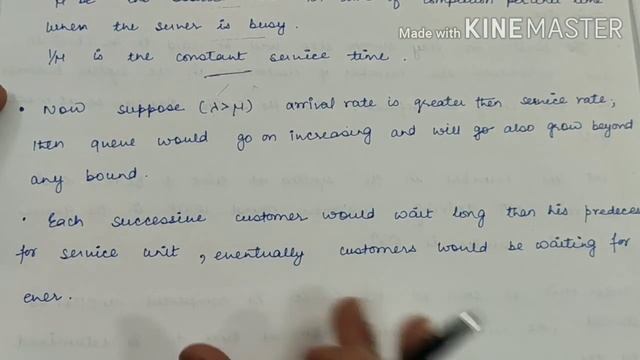 μ be the
when the server is busy.
Made with KINEMASTER
1/μ is the constant service time.
• Now suppose (λ>μ) arrival rate is greater then service rate,
then queue would go on increasing and will go also grow beyond
any bound.
• Each successive customer would wait long than his predeces
for service unit, eventually customers would be waiting for
ever.